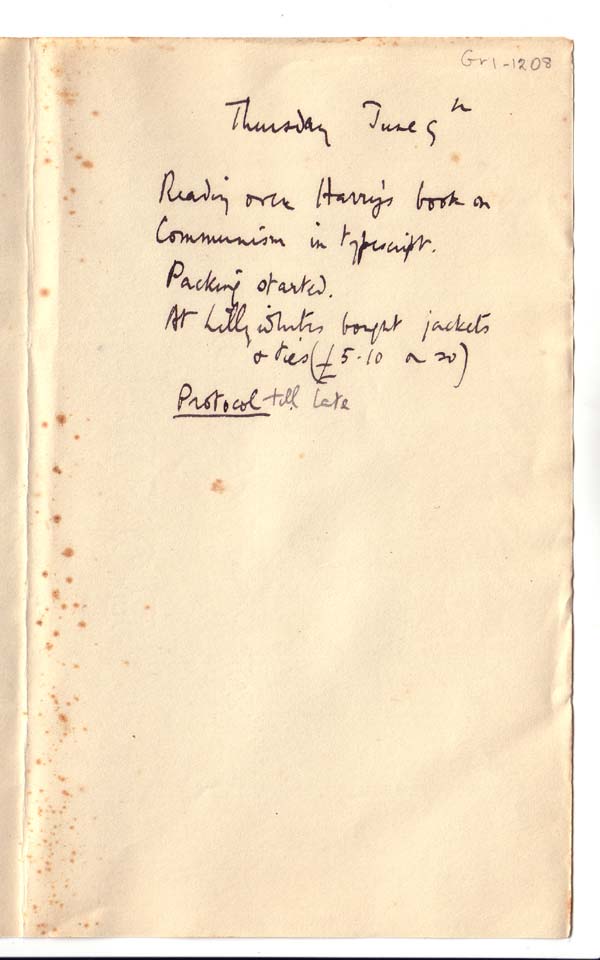 Gr1-1208
Thursday June 5th
Reading over Harry's book on
Communism in typescript.
Packing started.
At Lillywhites bought jackets
& ties (£5.10 or so)
Protocol till late